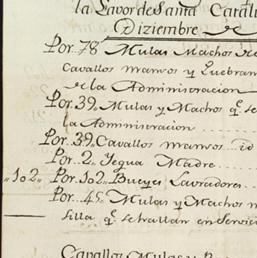 la Lavor de Santa Catali
Diziembre de
Por. 78 Mulas Machos
Cavallos mansos y Quebran
de la Administracion
Por. 39. Mulas y Machos q.e se
la Administracion
Por. 39 Cavallos mansos ... id
Por. 2. Yegua Madre
"102" Por. 102 Bueyes Lavradores
Por. 45. Mulas y Machos
silla q.e se hallan en Servicio
Cavallos Mulas y